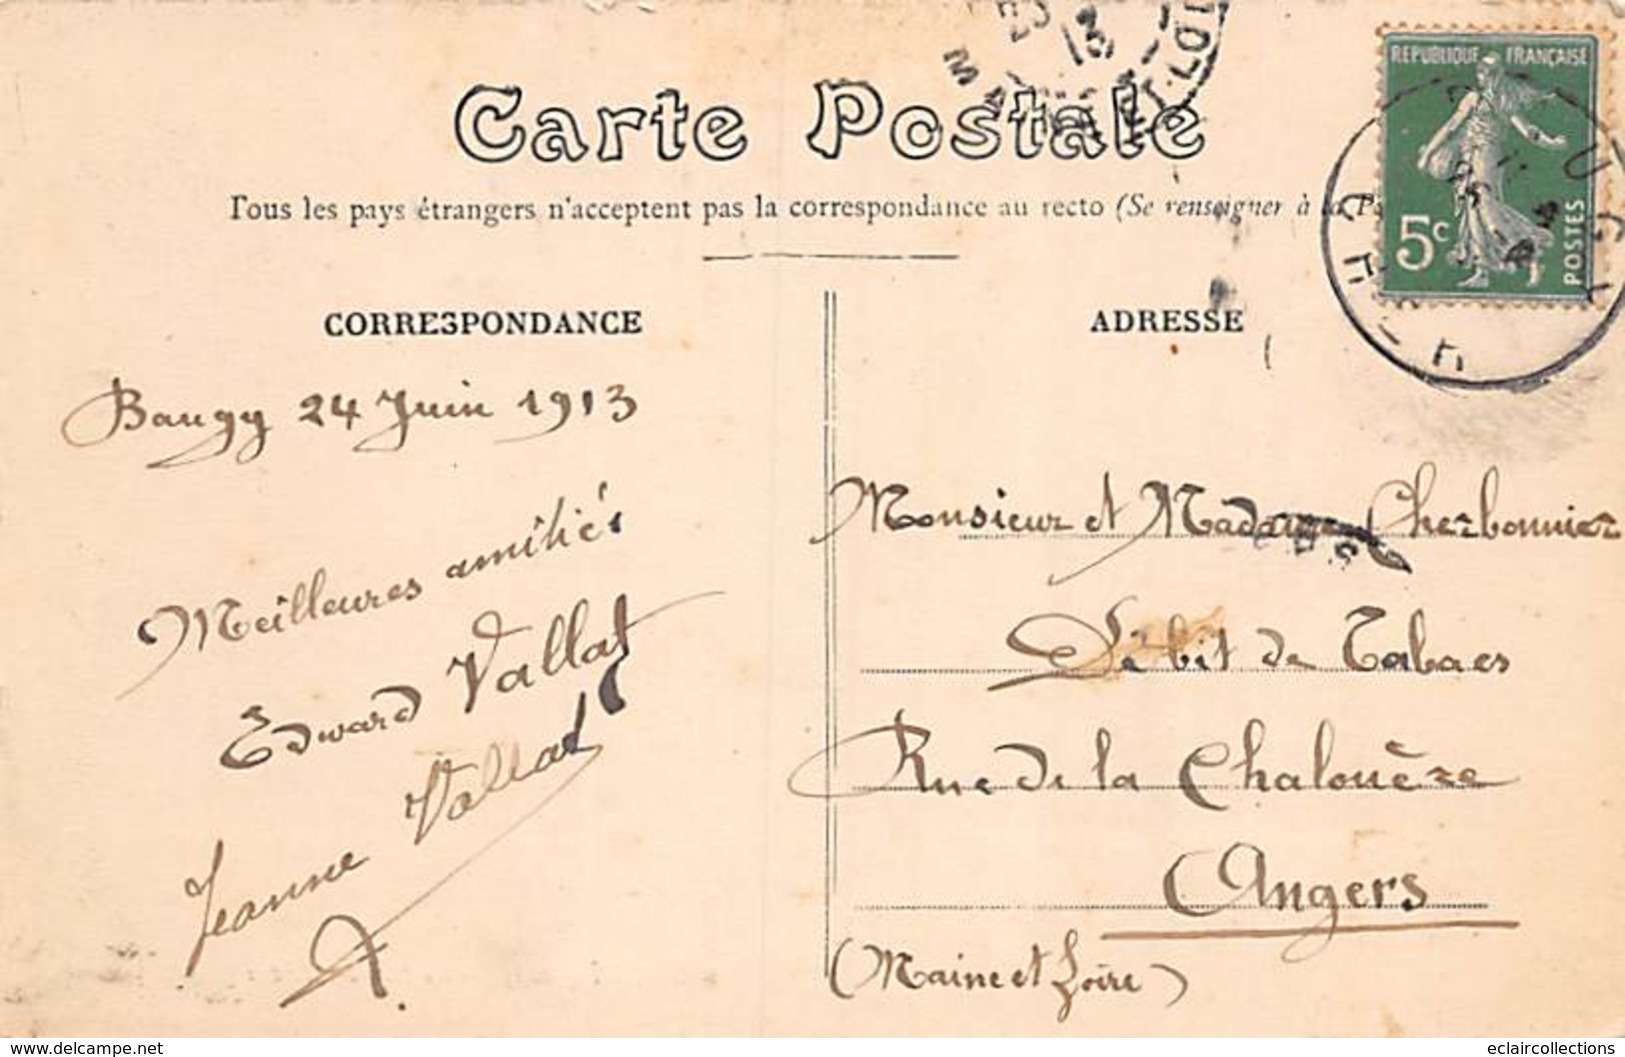 Carte Postale
Tous les pays étrangers n'acceptent pas la correspondance au recto (Se renseigner à la
REPUBLIQUE FRANÇAISE
5c
POSTES
CORRESPONDANCE
Baugy 24 Juin 1913
Meilleures amitiés
Edward Vallat
Jeanne Vallat
ADRESSE
Monsieur et Madame Cherbonnier
Débit de Tabacs
Rue de la Chalouère
Angers
(Maine et Loire)
delcampe.net
eclaircollections